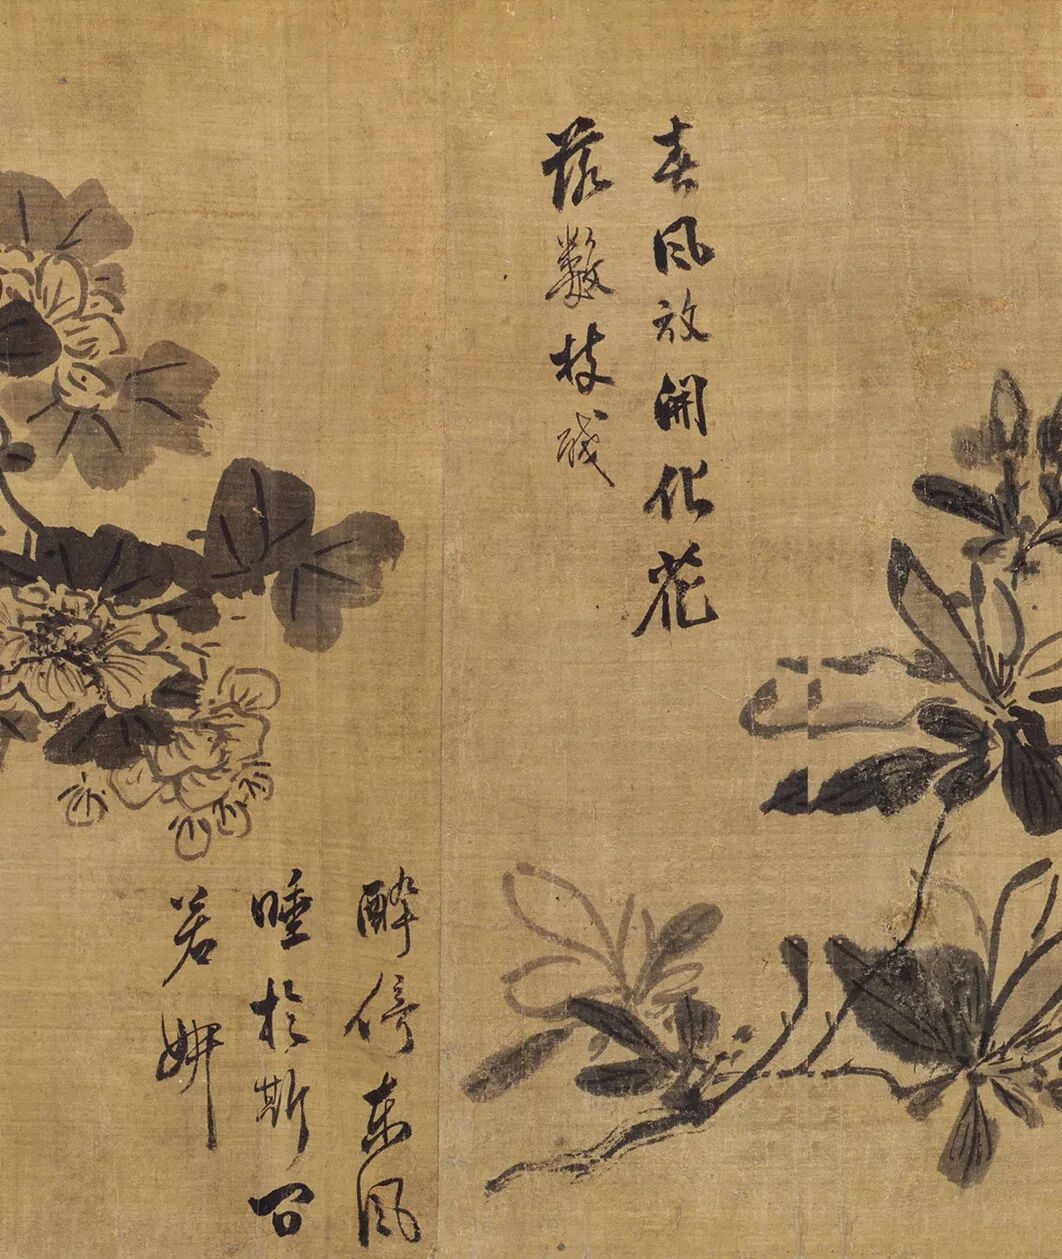 春風放開花
落數枝殘
醉倚東風
睡於斯
若妍